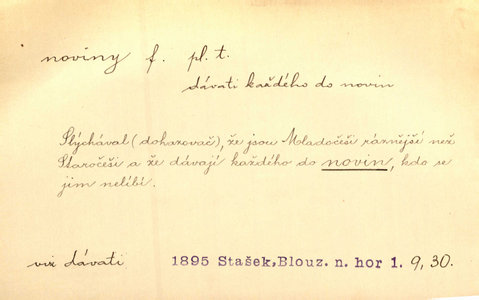 noviny f. pl. t.
dávati každého do novin
Slýchával (dohazovač), že jsou Mladočeši ráznější než
Staročeši a že dávají každého do novin, kdo se
jim nelíbí.
viz dávati 1895 Stašek, Blouz. n. hor 1. 9, 30.